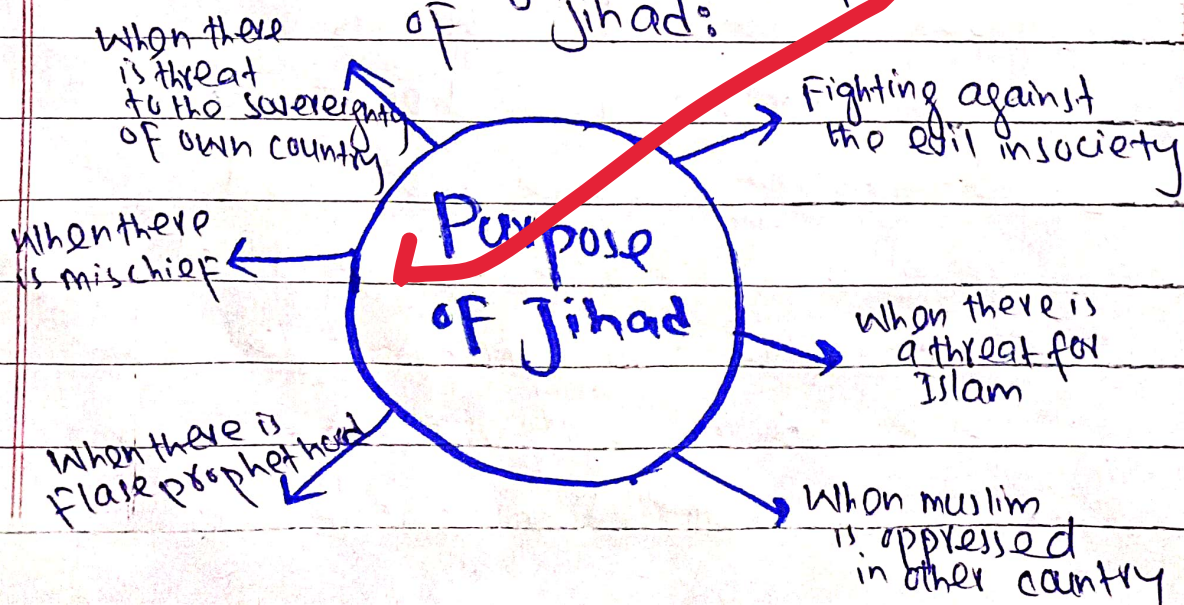 of Jihad:
When there
is threat
to the sovereignty
of own country
Fighting against
the evil in society
When there
is mischief
Purpose
of Jihad
When there is
a threat for
Islam
When there is
Flase prophethood
When muslim
is oppressed
in other country